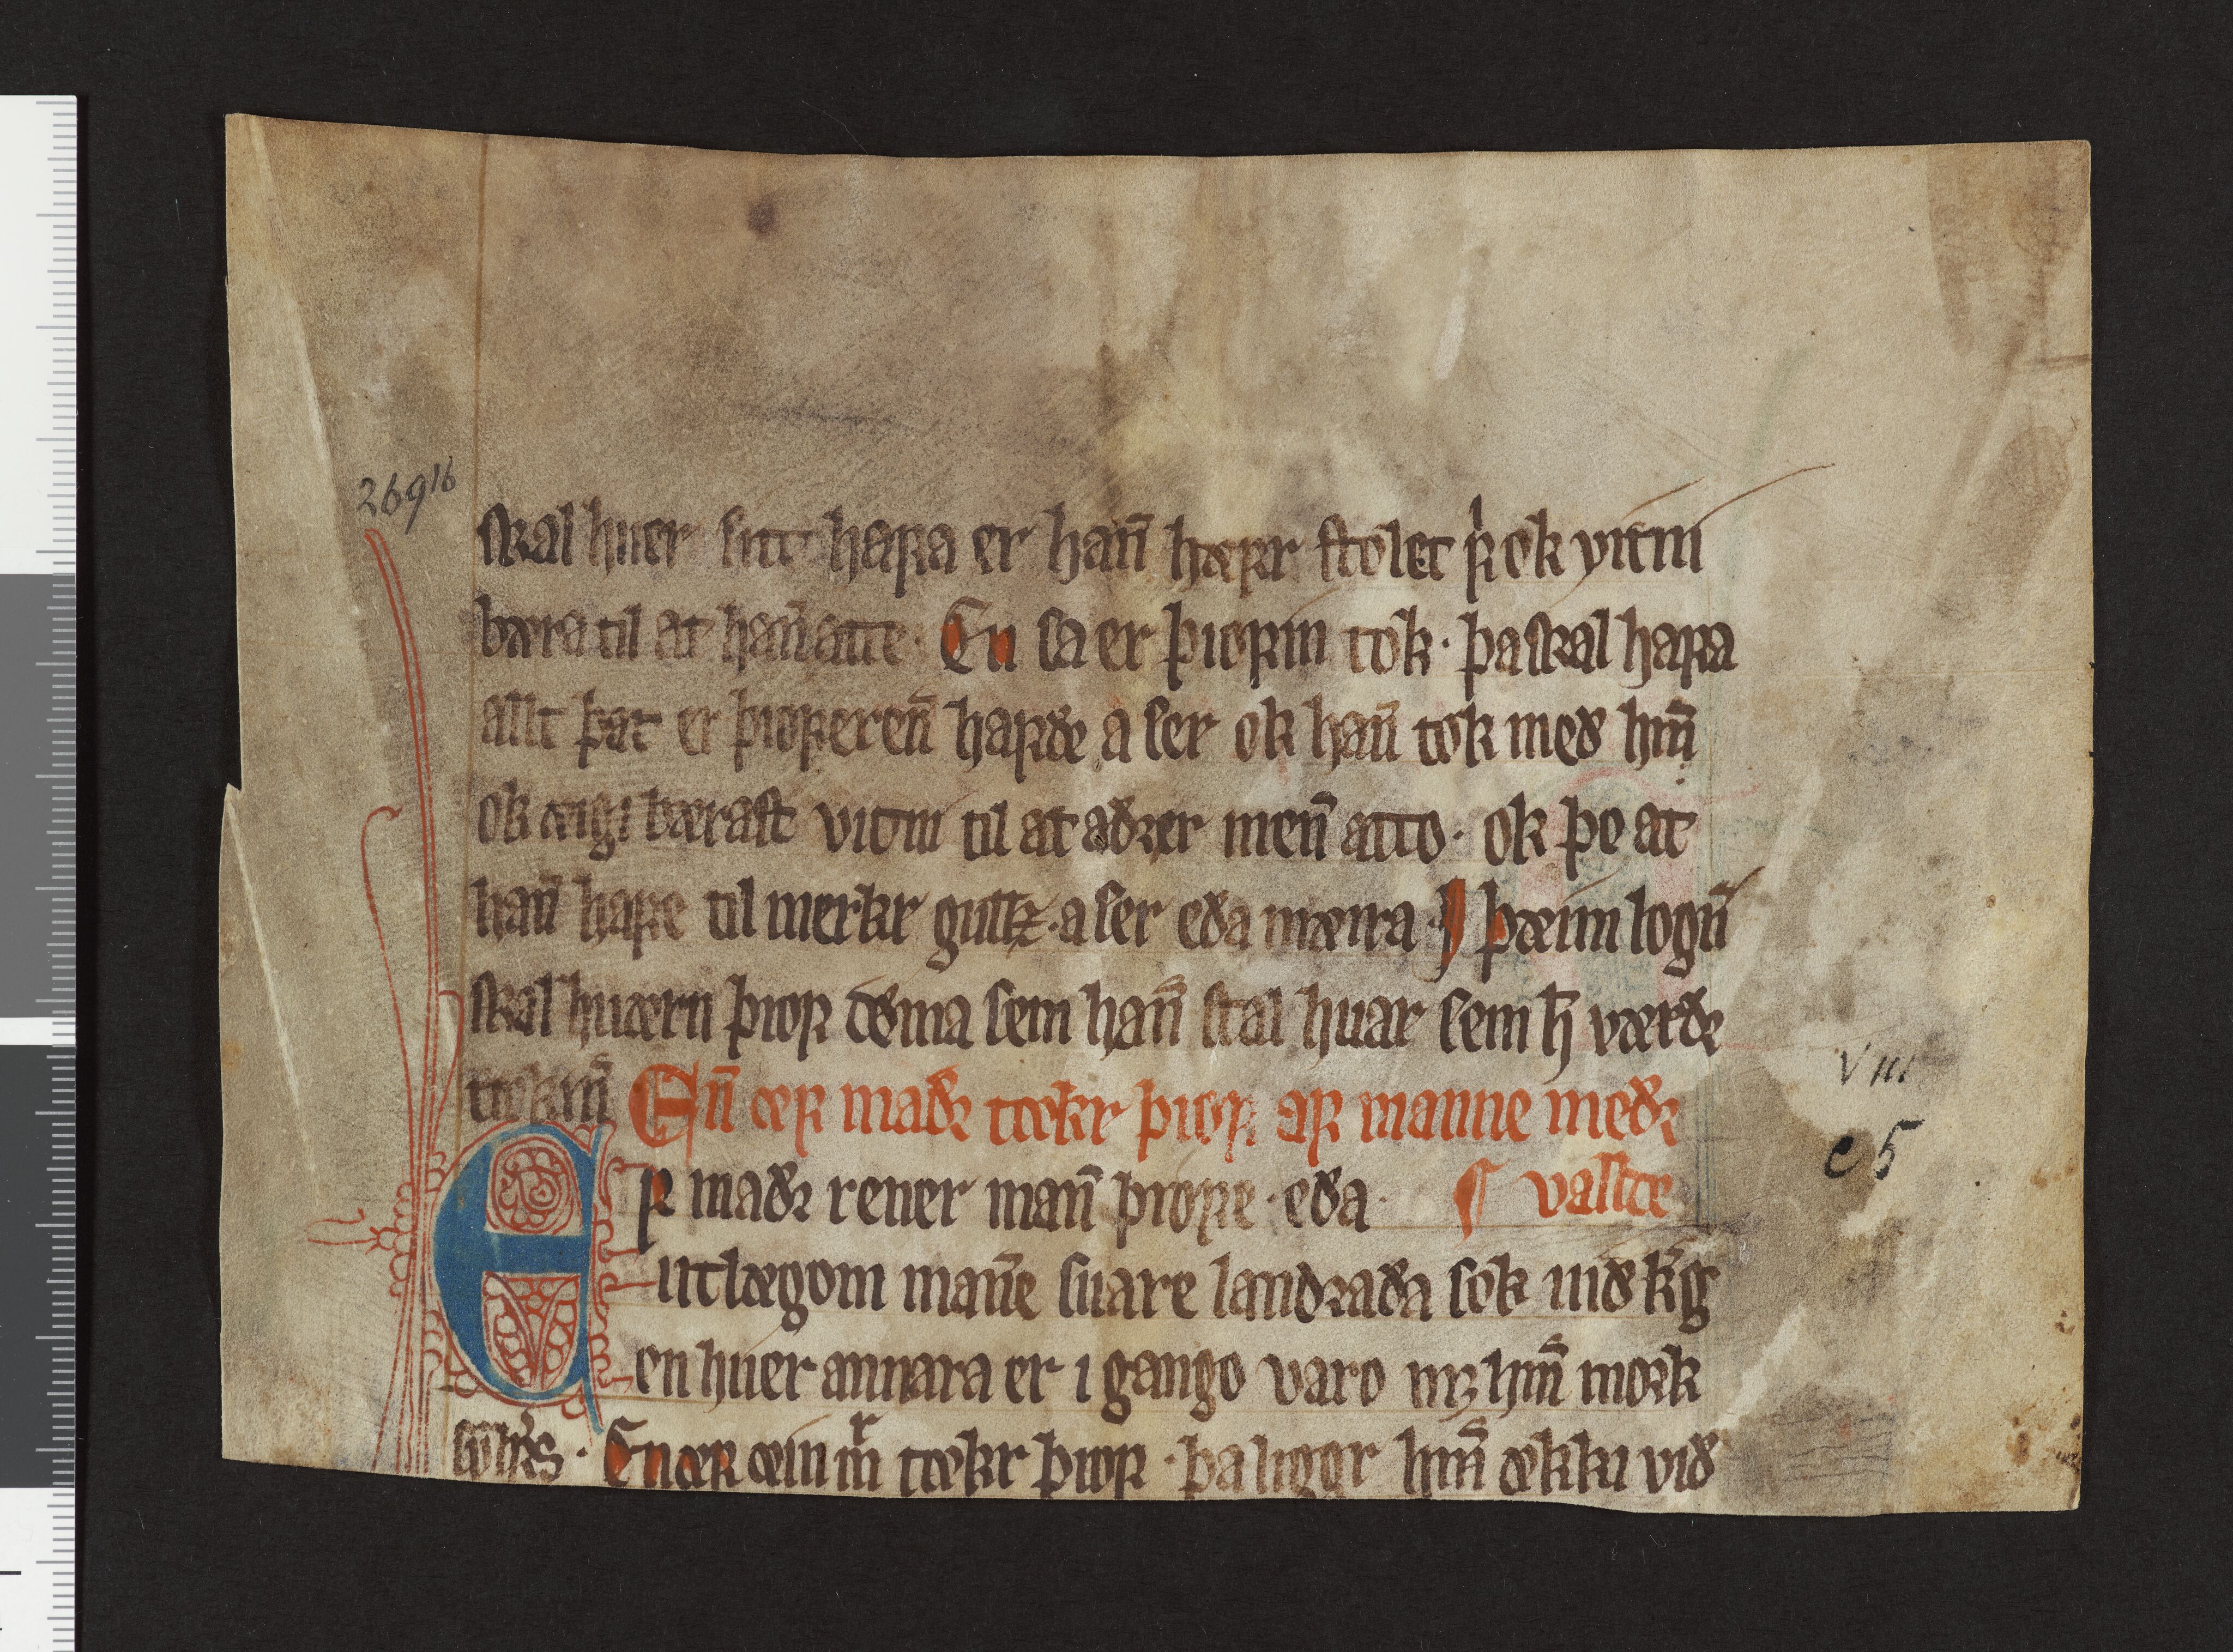 269¹⁶
skal huer sitt hafa er han̄ hæfir stolet fͥ ok vitni
bæra til at han̄ atte. En sa er þiofin tok. þa skal hafa
allt þat er þioferen̄ hafde a ser ok han̄ tok med hm̄
ok æigi bærast vitni til at adrer men̄ atto. ok þo at
han̄ hafe til merkr gullz. a ser eða mæira. J þæim logū
skal huærn þiof dǿma sem han̄ stal huar sem h̄ værðr
tækin̄ En̄ æf maðr tækr þiof af manne medr
¶ vallde
Ef maðr rener man̄ þiofe. eða.
utlægom man̄e suare landraða sok uið kḡ
en huer annara er i gango varo mꝫ hm̄ mork
silfrs. En æf æin mͬ tækr þiof. þa liggr hm̄ ækki við
VIII
c 5